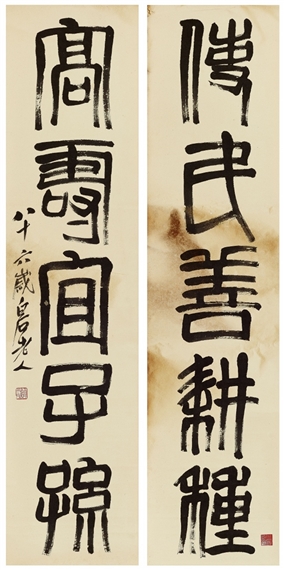 使民善耕種
高壽宜子孫
八十六歲白石老人